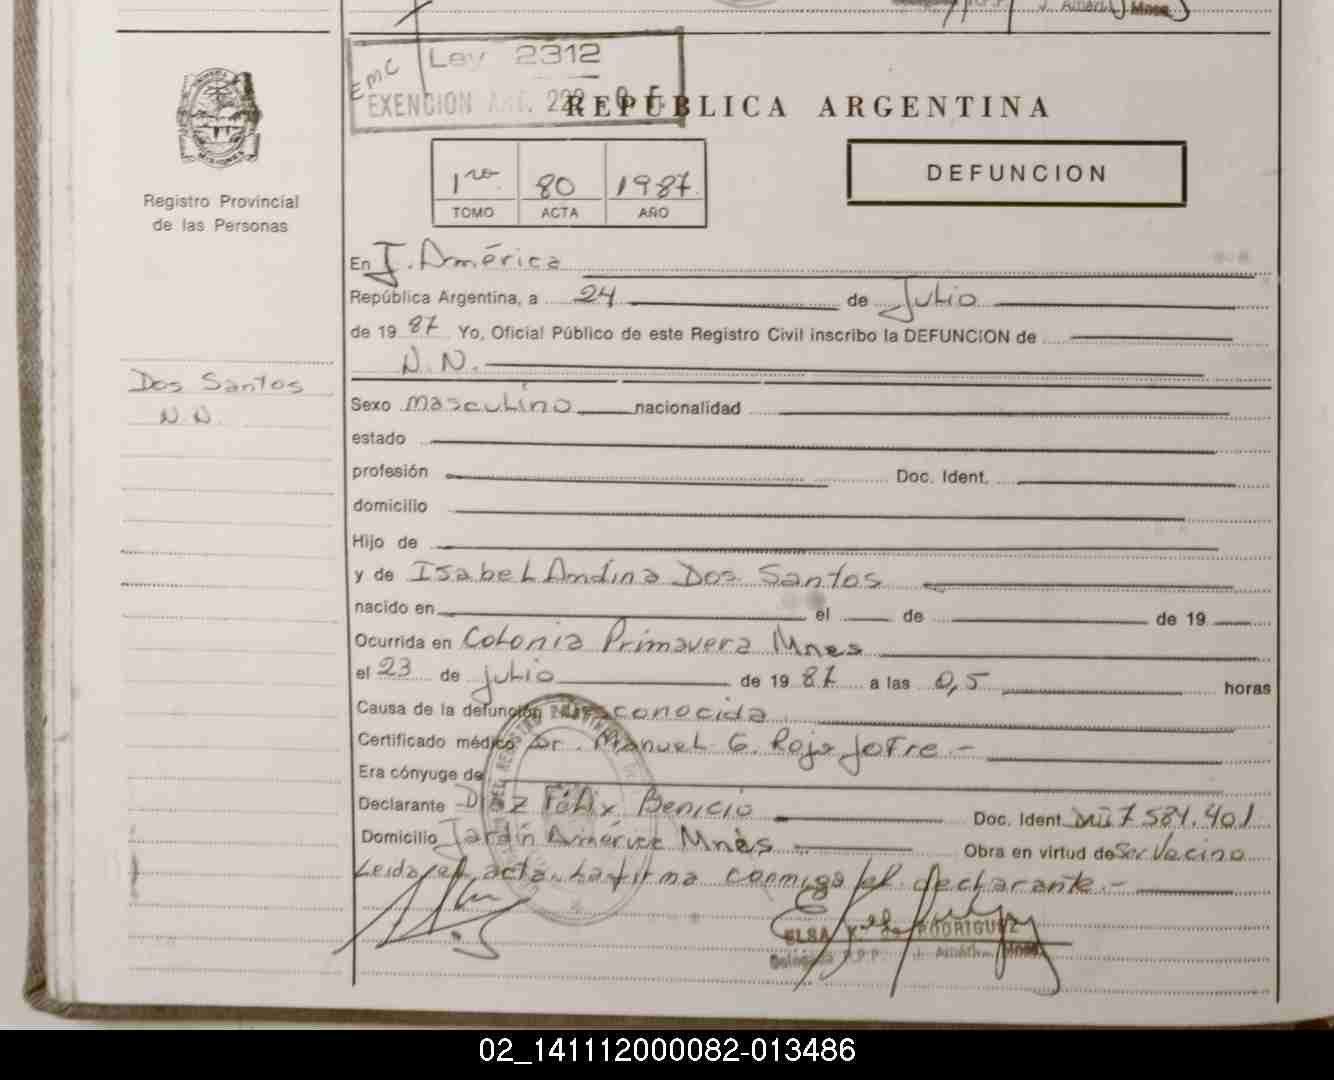 EMC
Ley 2312
EXENCION Art. 222
REPUBLICA ARGENTINA
DEFUNCION
1ro 80 1987
TOMO ACTA AÑO
Registro Provincial
de las Personas
En J. América
República Argentina, a 24 de Julio
de 1987 Yo, Oficial Público de este Registro Civil inscribo la DEFUNCION de
N.N.
Dos Santos
N.N.
Sexo masculino nacionalidad
estado
profesión Doc. Ident.
domicilio
Hijo de
y de Isabel Andina Dos Santos
nacido en el de de 19
Ocurrida en Colonia Primavera Mnes
el 23 de julio de 1987 a las 0,5 horas
Causa de la defunción Desconocida
Certificado médico Dr. Manuel G. Rojo Jofre -
Era cónyuge de
Declarante Díaz Félix Benicio Doc. Ident. DNI 7 584.401
Domicilio Jardín América Mnes Obra en virtud de Ser Vecino
Leida el acta la firma conmigo el declarante.-
ELSA RODRIGUEZ
Delegada R.P.P. J. América Mnes
02_141112000082-013486